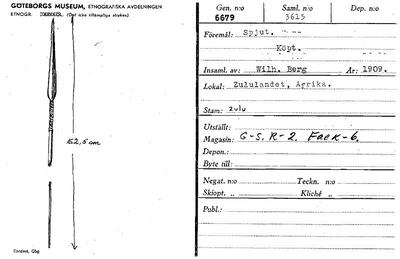 GÖTEBORGS MUSEUM, ETNOGRAFISKA AVDELNINGEN
ETNOGR. (Det icke tillämpliga strykes)
152,5 cm
Gen. n:o Saml. n:o Dep. n:o
6679 3615
Föremål: Spjut.
Köpt.
Insaml. av: Wilh. Berg År: 1909.
Lokal: Zululandet, Agrika.
Stam: zulu
Utställt:
Magasin: G-S. R-2. Fack-6.
Depon.:
Byte till:
Negat. n:o Teckn. n:o
Skiopt. „ Kliché „
Publ.: